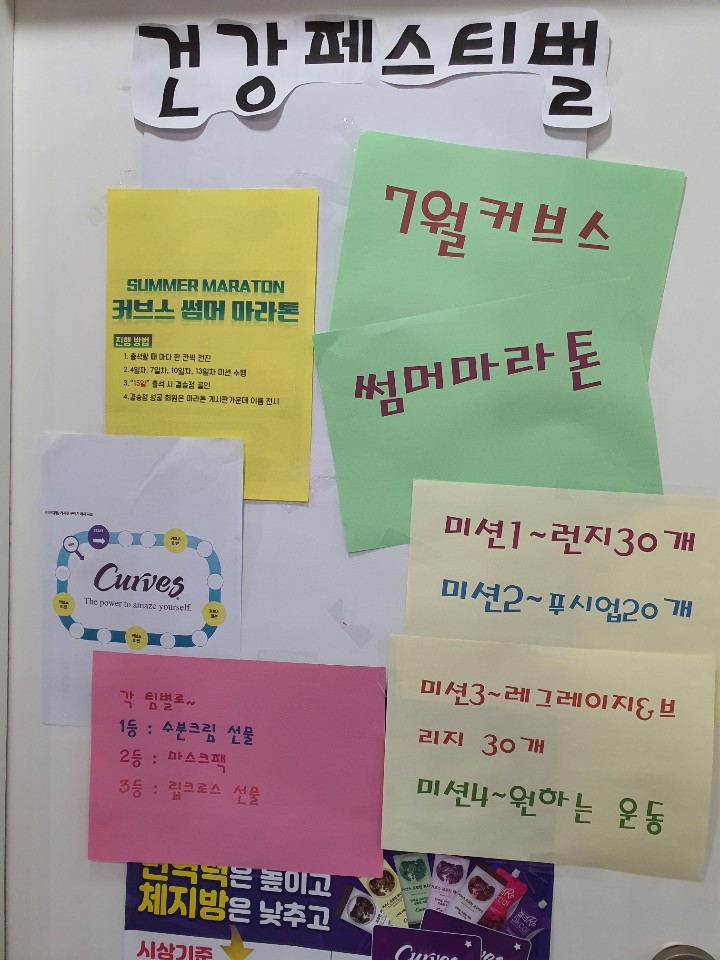 건강페스티벌
7월커브스
썸머마라톤
SUMMER MARATON
커브스 썸머 마라톤
진행 방법
1. 출석할 때 마다 한 칸씩 전진
2. 4일차, 7일차, 10일차, 13일차 미션 수행
3. "15일" 출석 시 결승점 골인
4. 결승점 성공 회원은 마라톤 게시판 가운데 이름 전시
START
Curves
The power to amaze yourself.
미션1~런지30개
미션2~푸시업20개
미션3~레그레이지&브
리지 30개
미션4~원하는 운동
각 팀별로~
1등 : 수분크림 선물
2등 : 마스크팩
3등 : 립크로스 선물
면역력은 높이고
체지방은 낮추고
시상기준
Curves